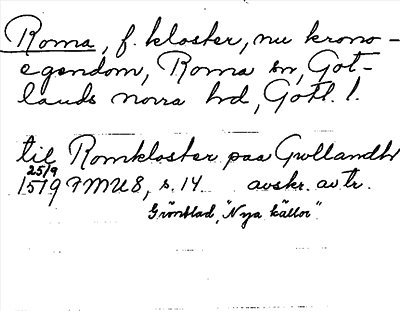 Roma, f. kloster, nu krono-
egendom, Roma sn, Got-
lands norra hd, Gotl. l.
til Romkloster paa Gwllandh
25/9
1519 FMU 8, s. 14 avskr. av tr.
Grönblad, "Nya källor".